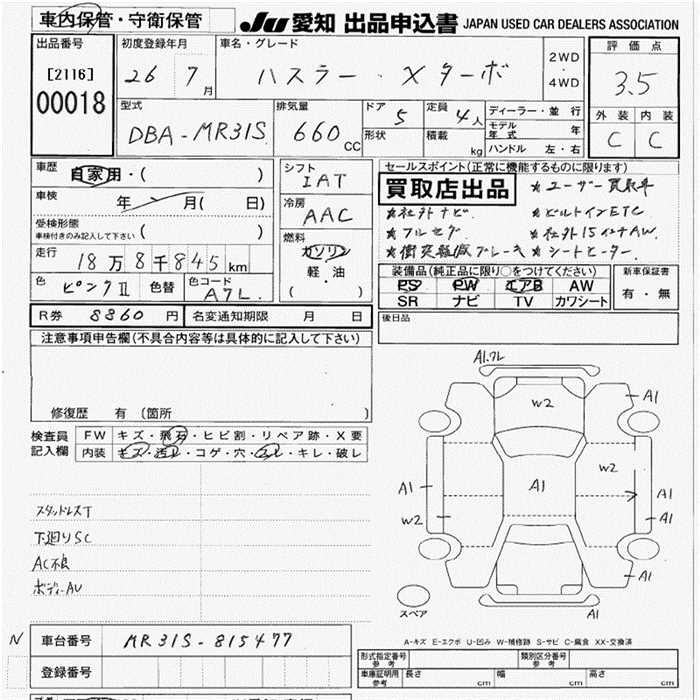 車内保管・守衛保管
JU 愛知 出品申込書 JAPAN USED CAR DEALERS ASSOCIATION
出品番号
[2116]
00018
初度登録年月
26 7月
車名・グレード
ハスラー・Xターボ
2WD
4WD
評価点
3.5
外装 内装
C C
型式
DBA-MR31S
排気量
660cc
ドア 5
形状
定員 4人
積載 kg
ディーラー・並行
モデル年式 年
ハンドル 左・右
車歴
自家用・( )
車検
年 月( 日)
受検形態
車検付きのみ記入して下さい ( )
走行
18万8千845km
色 ピンクII 色替 色コード A7L
シフト
IAT
冷房
AAC
燃料
ガソリン
軽・油
( )
セールスポイント(正常に機能するものに限ります)
買取店出品 ★ユーザー買取車
★社外ナビ ★ビルトインETC
★フルセグ ★社外15インチAW
★衝突軽減ブレーキ ★シートヒーター
装備品(純正品に限り○をつけてください)
PS PW エアB AW
SR ナビ TV カワシート
新車保証書
有・無
R券 8860円 名変通知期限 月 日
後日品
注意事項申告欄(不具合内容等は具体的に記入して下さい)
修復歴 有(箇所 )
検査員
記入欄
FW キズ・飛石・ヒビ割・リペア跡・X要
内装 キズ・汚レ・コゲ・穴・スレ・キレ・破レ
スタッドレスT
下廻りSC
AC不良
ボディーAU
A1.クレ
W2
A1
W2
A1
A1
A1
W2
A1
A1
A1
スペア
A1
A-キズ E-エクボ U-凹み W-補修跡 S-サビ C-腐食 XX-交換済
N 車台番号 MR31S-815477
登録番号
形式指定番号 参考
類別区分番号 参考
車庫証明用 参考 長さ cm 幅 cm 高さ cm